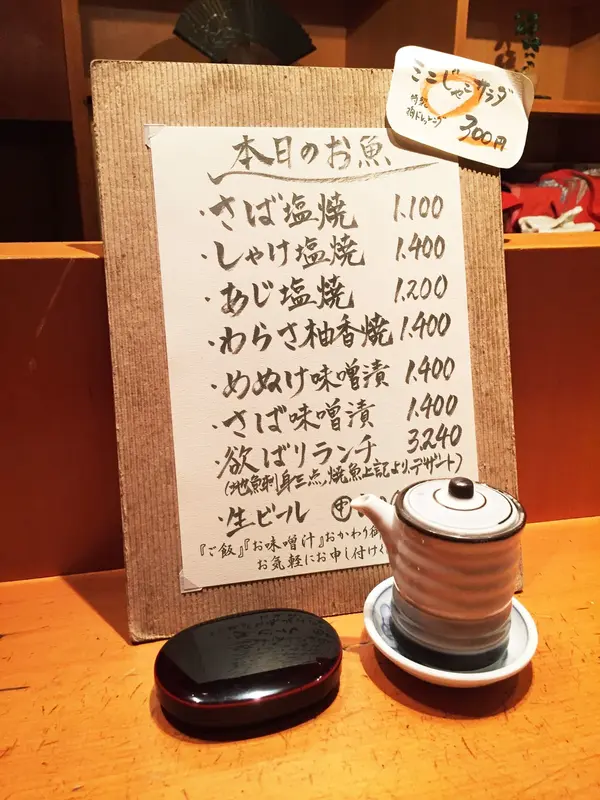 ミニじゃこサラダ
300円
本日のお魚
・さば塩焼 1.100
・しゃけ塩焼 1.400
・あじ塩焼 1.200
・わらさ柚香焼 1.400
・めぬけ味噌漬 1.400
・さば味噌漬 1.400
・欲ばりランチ 3.240
(地魚刺身三点、焼魚上記より、デザート)
・生ビール 中
『ご飯』『お味噌汁』おかわり
お気軽にお申し付けく